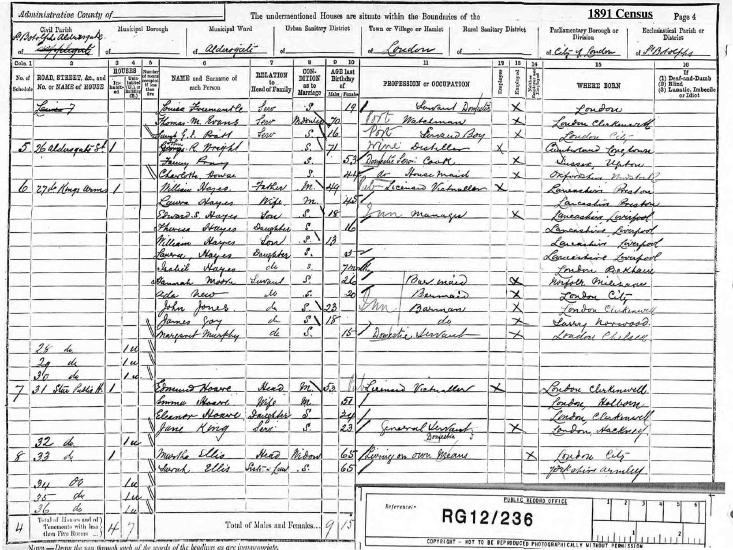 Administrative County of The undermentioned Houses are situate within the Boundaries of the 1891 Census Page 4
Civil Parish Municipal Borough Municipal Ward Urban Sanitary District Town or Village or Hamlet Rural Sanitary District Parliamentary Borough or Division Ecclesiastical Parish or District
St Botolph Aldersgate
of of of Aldersgate of of London of of City of London of St Botolphs
Cols. 1 2 3 4 5 6 7 8 9 10 11 12 13 14 15 16
No. of Schedule ROAD, STREET, &c., and No. or NAME of HOUSE HOUSES NAME and Surname of each Person RELATION to Head of Family CONDITION as to Marriage AGE last Birthday of PROFESSION or OCCUPATION WHERE BORN If (1) Deaf-and-Dumb (2) Blind (3) Lunatic, Imbecile or Idiot
Males Females
Louisa Serv S. 19 Servant Domestic X London
Thomas M. Evans Serv Widower 70 Watchman X London Clerkenwell
Pratt Serv S 16 Boy X London City
5 26 Aldersgate St 1 R Wright S. 71 Distiller X Cumberland
Fanny S. 53 Domestic Serv Cook X Sussex,
Charlotte S. 44 do House Maid X Oxfordshire
6 27 do Kings Arms 1 William Hayes Father M. 49 Licensed Victualler X Lancashire Preston
Laura Hayes Wife M. 45 Lancashire Preston
Edward S. Hayes Son S. 18 Inn Manager X Lancashire Liverpool
Theresa Hayes Daughter S. 16 Lancashire, Liverpool
William Hayes Son S. 13 Lancashire Liverpool
Laura, Hayes Daughter S. 5 Lancashire Liverpool
Isabel Hayes do S. 7 months London
Hannah Moore Servant S 26 Bar maid X Norfolk
Ada New do S. 20 Barmaid X London City
John Jones do S. 23 Inn Barman X London Clerkenwell
James Gay do S 18 do X Surry Norwood
Margaret Murphy do S. 15 Domestic Servant X London Chelsea
28 do 1u
29 do 1u
30 do 1u
7 31 Star Public H. 1 Edmund Hoare Head M. 53 Licensed Victualler X London Clerkenwell
Emma Hoare Wife M. 51 London, Holborn
Eleanor Hoare Daughter S. 24 London Clerkenwell
Jane King Serv S. 23 General Servant X London, Hackney
Domestic
32 do 1u
8 33 do 1 Martha Ellis Head Widow 65 Living on own Means X London City
Sarah Ellis Sister in Law S. 65 Yorkshire Armley
34 do 1u
35 do 1u
36 do 1u
4 Total of Houses and of Tenements with less than Five Rooms 4 7 Total of Males and Females... 9 15
PUBLIC RECORD OFFICE
Reference:-
RG12/236
1 2
COPYRIGHT - NOT TO BE REPRODUCED PHOTOGRAPHICALLY WITHOUT PERMISSION
NOTE.— Draw the pen through such of the words of the headings as are inappropriate.